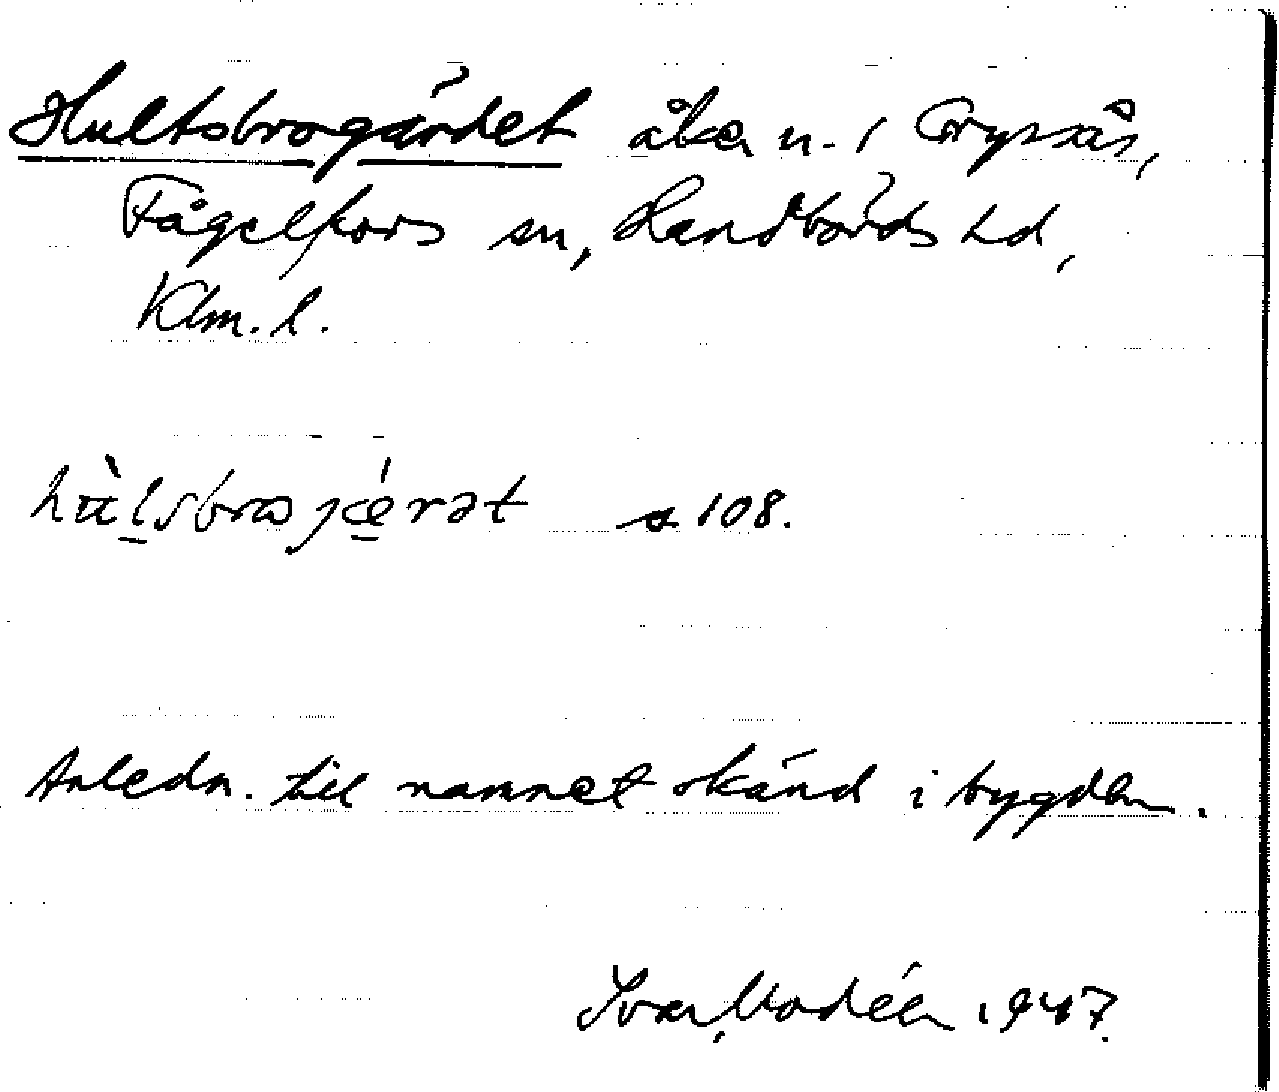 Hultsbrogärdet åker n. i Gryssås,
Fågelfors sn, Handbörds hd,
Klm. l.
a 108.
Anledn. till namnet okänd i bygden.
Ivar Modéer 1947.